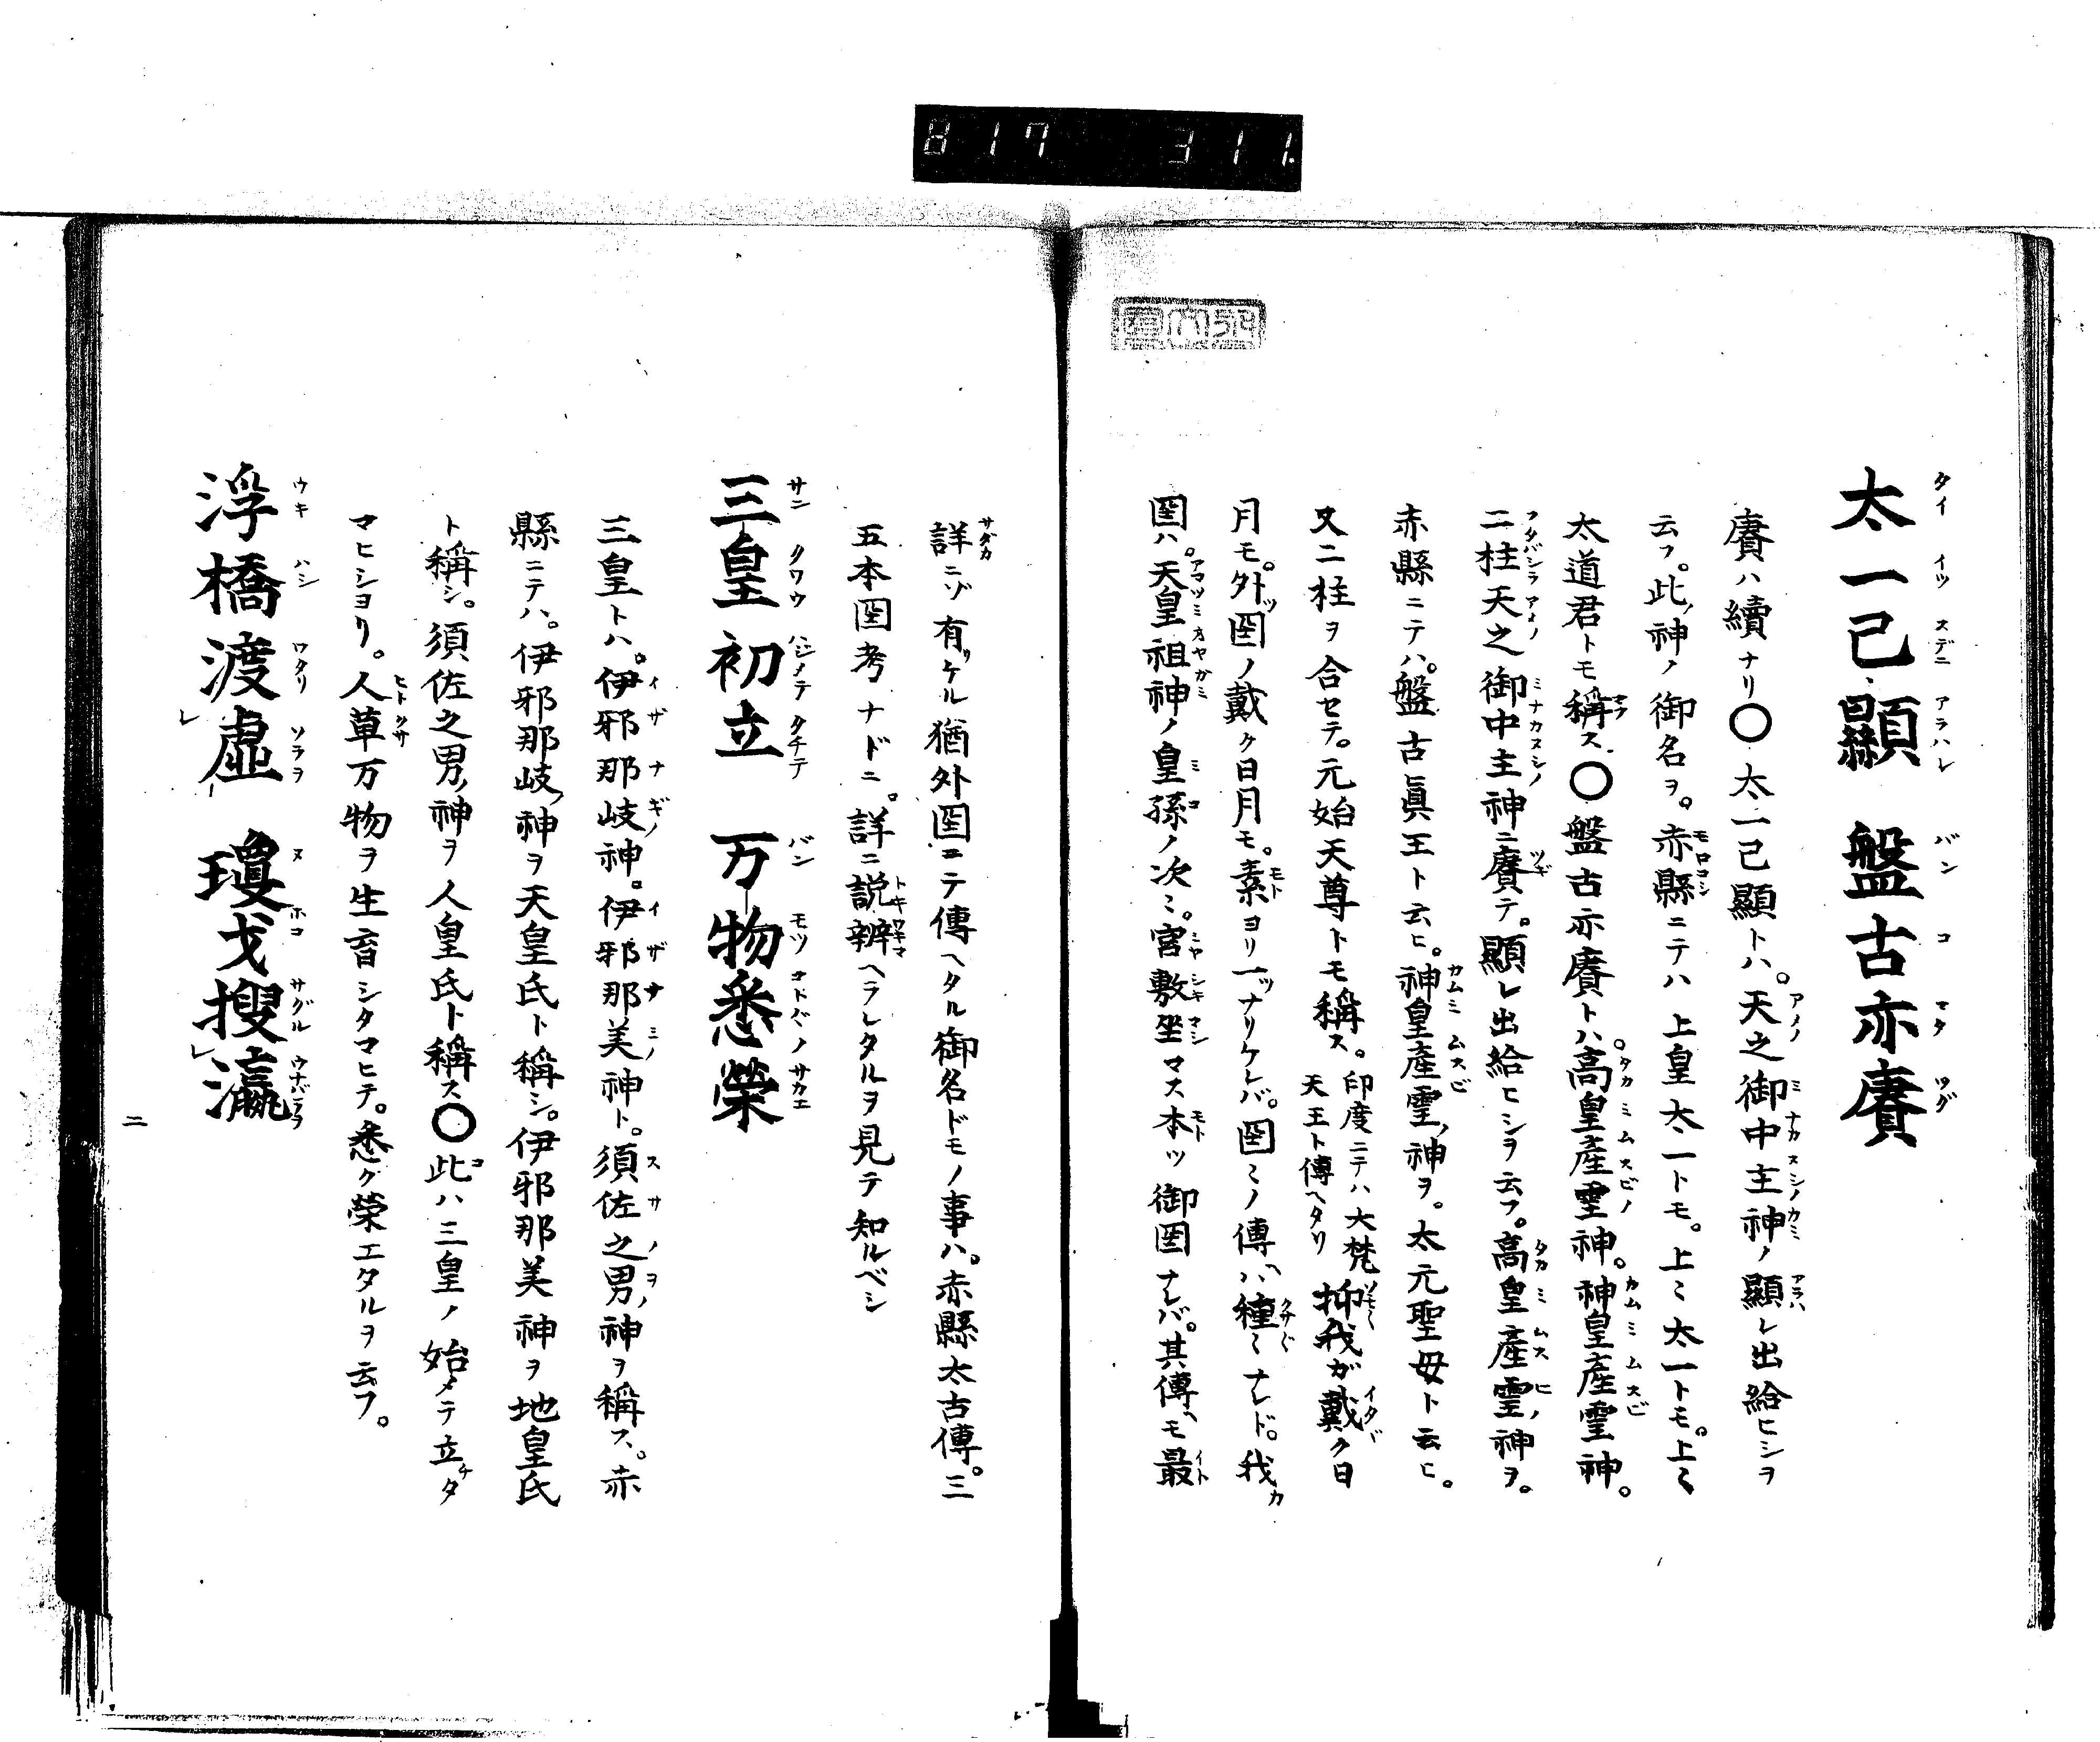 817 311.
太一已顯 盤古亦賡
賡ハ續ナリ〇太一已顯トハ。天之御中主神ノ顯レ出給ヒシヲ
云フ。此ノ神ノ御名ヲ。赤縣ニテハ上皇太一トモ。上〻太一トモ。上〻
太道君トモ稱ス〇盤古亦賡トハ。高皇產靈神。神皇產靈神。
二柱天之御中主神ニ賡テ。顯レ出給ヒシヲ云フ。高皇產靈ノ神ヲ。
赤縣ニテハ。盤古眞王ト云ヒ。神皇產靈ノ神ヲ。太元聖母ト云ヒ。
又二柱ヲ合セテ。元始天尊トモ稱ス。印度ニテハ大梵天王ト傳ヘタリ 抑我ガ戴ク日
月モ。外ツ圀ノ戴ク日月モ。素ヨリ一ツナリケレバ。圀〻ノ傳ヘハ種〻ナレド。我カ
圀ハ。天皇祖神ノ皇孫ノ次〻。宮敷坐マス本ツ御圀ナレバ。其傳ヘモ最
詳ニゾ有リケル猶外圀ニテ傳ヘタル御名ドモノ事ハ。赤縣太古傳。三
五本圀考ナドニ。詳ニ説辨ヘラレタルヲ見テ知ルベシ
三皇初立 万物悉榮
三皇トハ。伊邪那岐神。伊邪那美神ト。須佐之男ノ神ヲ稱ス。赤
縣ニテハ。伊邪那岐ノ神ヲ天皇氏ト稱シ。伊邪那美神ヲ地皇氏
ト稱シ。須佐之男ノ神ヲ人皇氏ト稱ス〇此ハ三皇ノ始メテ立チタ
マヒシヨリ。人草万物ヲ生畜シタマヒテ。悉ク榮エタルヲ云フ。
浮橋渡虛 瓊戈搜瀛
二